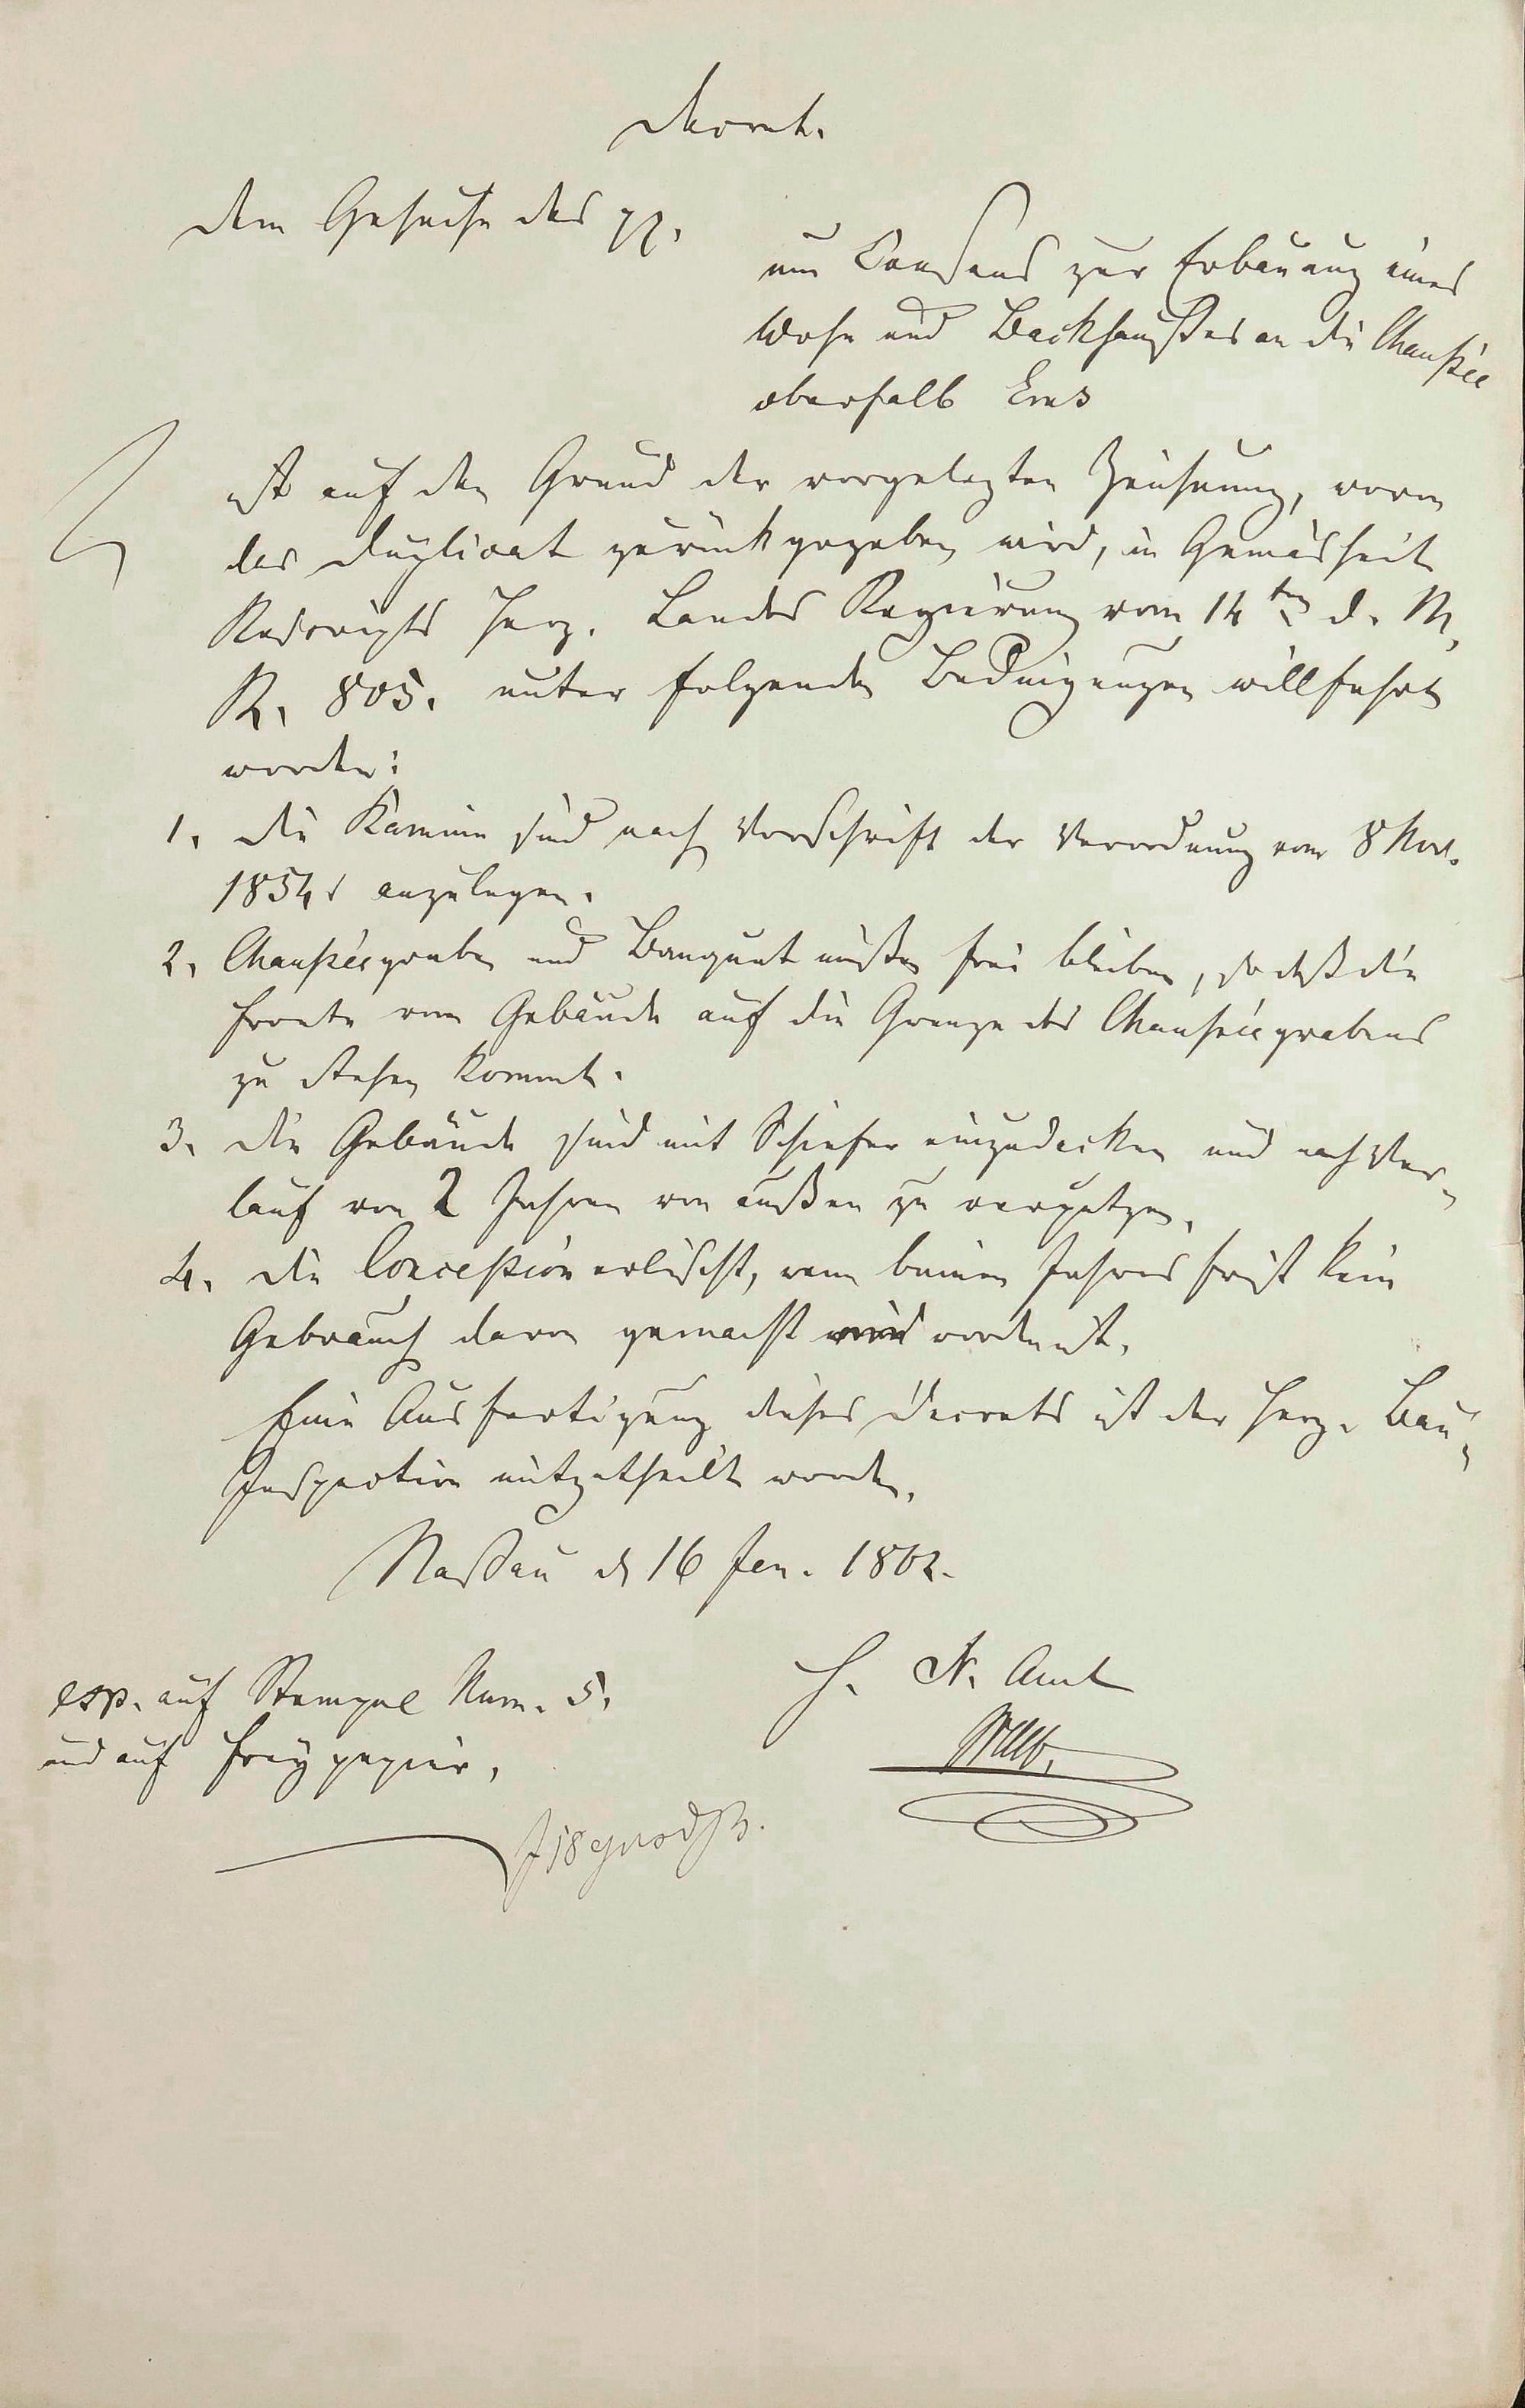 Decret.
Dem Gesuche des pp.
um Consens zur Erbauung eines
Wohn und Backhaußes an die Chaußee
oberhalb Ems
ist auf den Grund der vorgelegten Zeichnung, wovon
das Duplicat zurückgegeben wird, in Gemäsheit
Rescripts Herz. Landes Regierung vom 14ten d. M,
R. 805. unter folgenden Bedingungen willfahrt
worden:
1. Die Kamine sind nach Vorschrift der Verordnung vom 8 Nov.
1854 anzulegen.
2, Chaußeegraben und Banquet müßen frei bleiben, so daß die
Fronte vom Gebäude auf die Grenze des Chauseegrabens
zu stehen kommt.
3. Die Gebäude sind mit Schiefer einzudecken und nach Ver-
lauf von 2 Jahren von außen zu verputzen.
4. Die Conceßion erlischt, wenn binnen Jahresfrist kein
Gebrauch davon gemacht worden ist.
Eine Ausfertigung dieses Decrets ist der Herz. Bau-
Inspection mitgetheilt worden.
Naßau d 16 Jan. 1862.
H. N. Amt
exp. auf Stempel Num. 5.
und auf Freypapier,